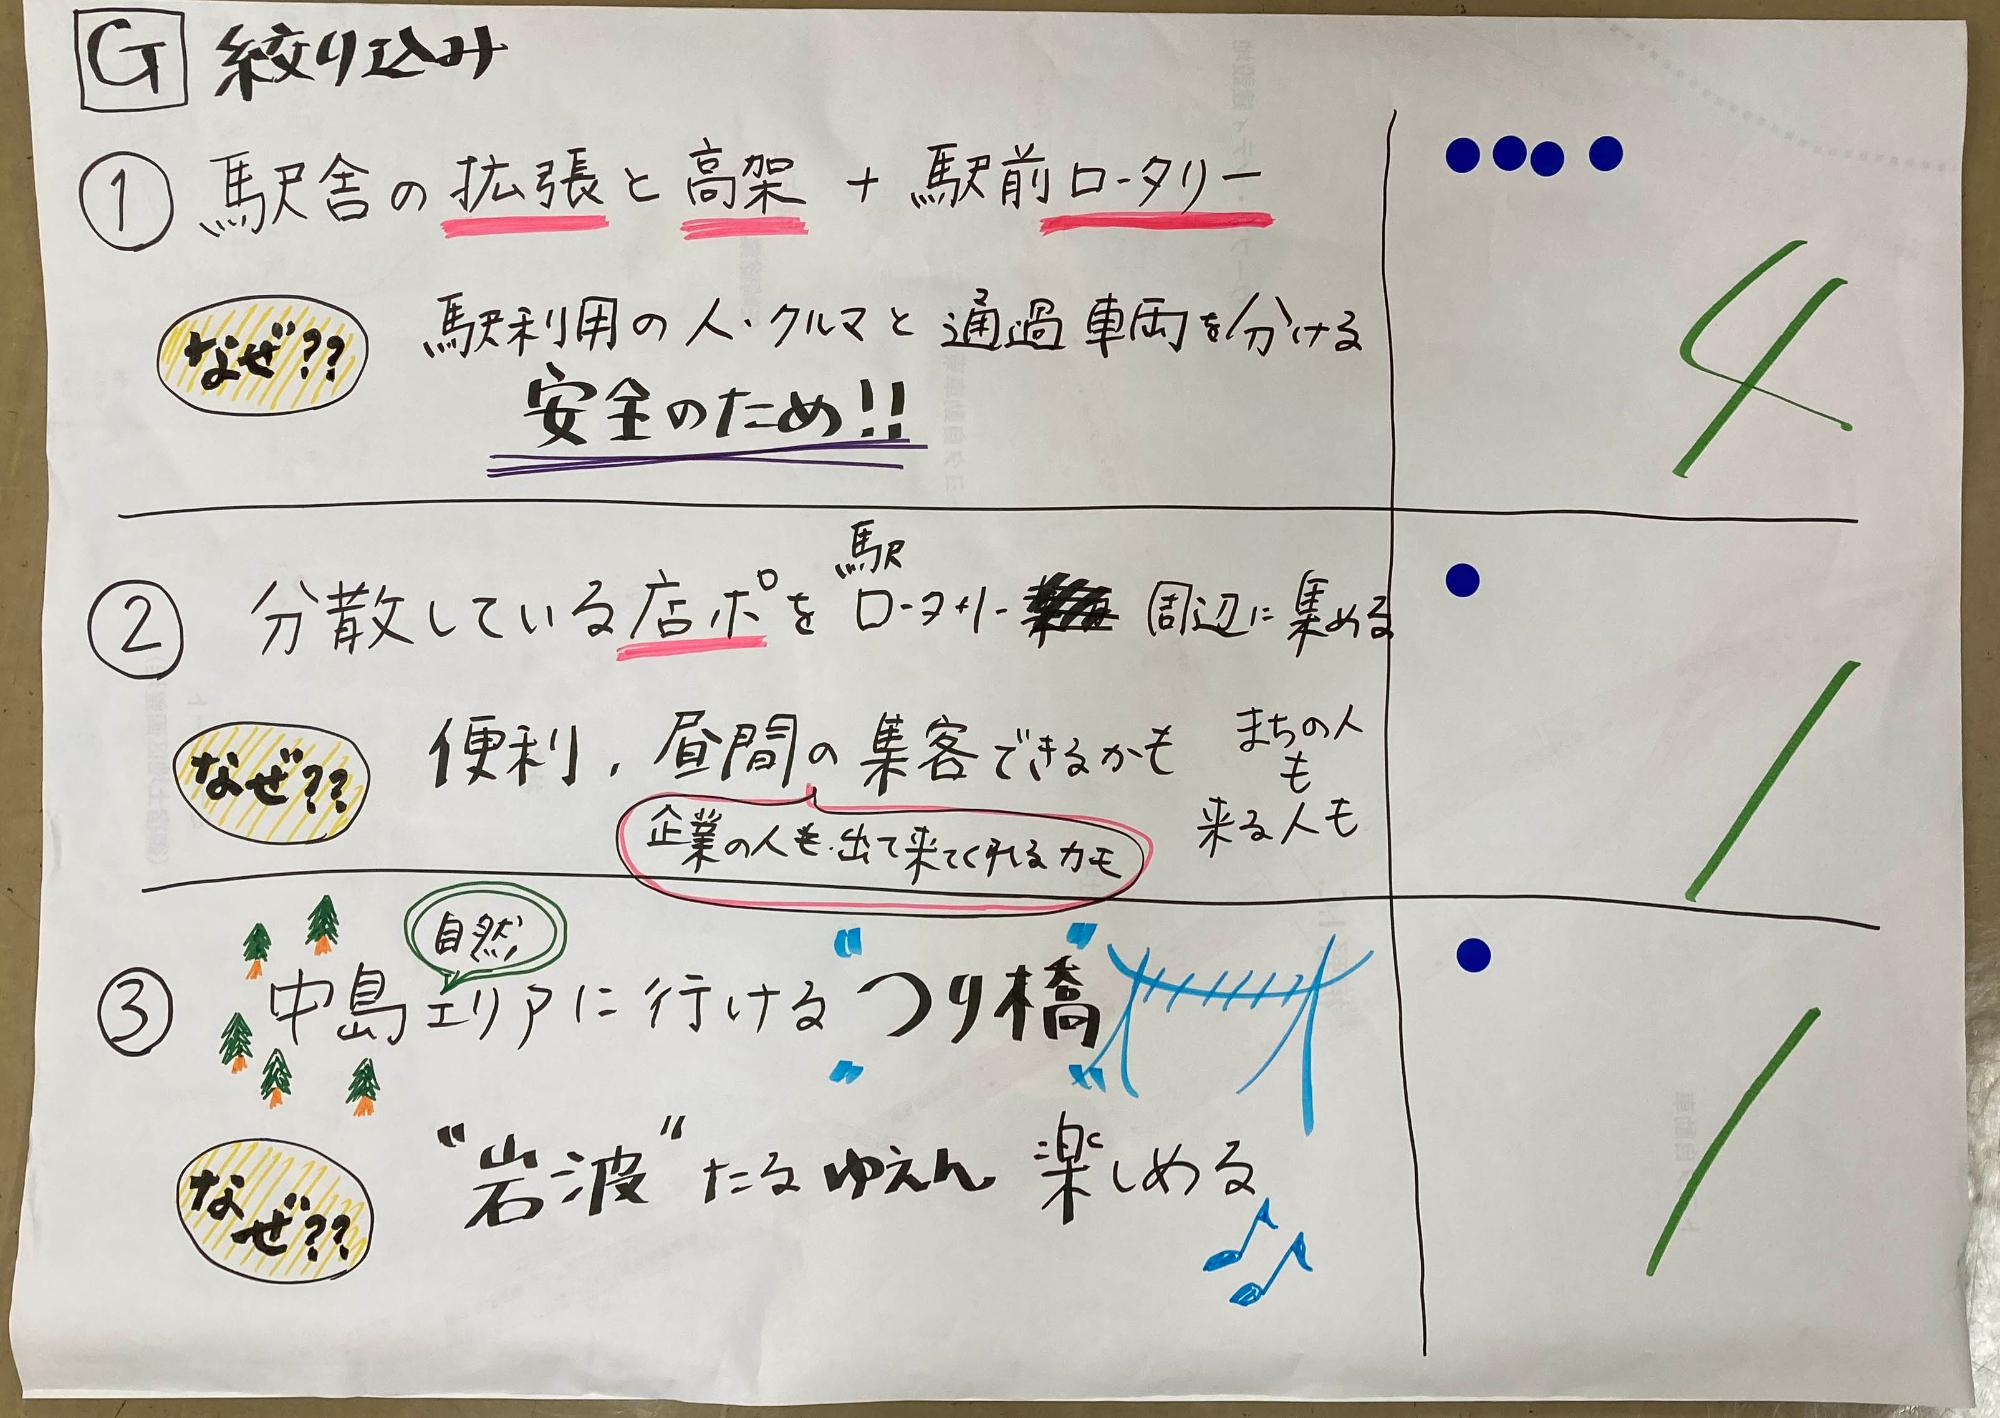 G 絞り込み
① 駅舎の拡張と高架 + 駅前ロータリー
なぜ?? 駅利用の人・クルマと通過車両を分ける
安全のため!!
4
② 分散している店ポを駅ロータリー 周辺に集める
なぜ?? 便利、昼間の集客できるかも
まちの人
も
来る人も
企業の人も出て来てくれるカモ
1
自然
③ 中島エリアに行ける"つり橋"
なぜ?? "岩波"たるゆえん 楽しめる
1